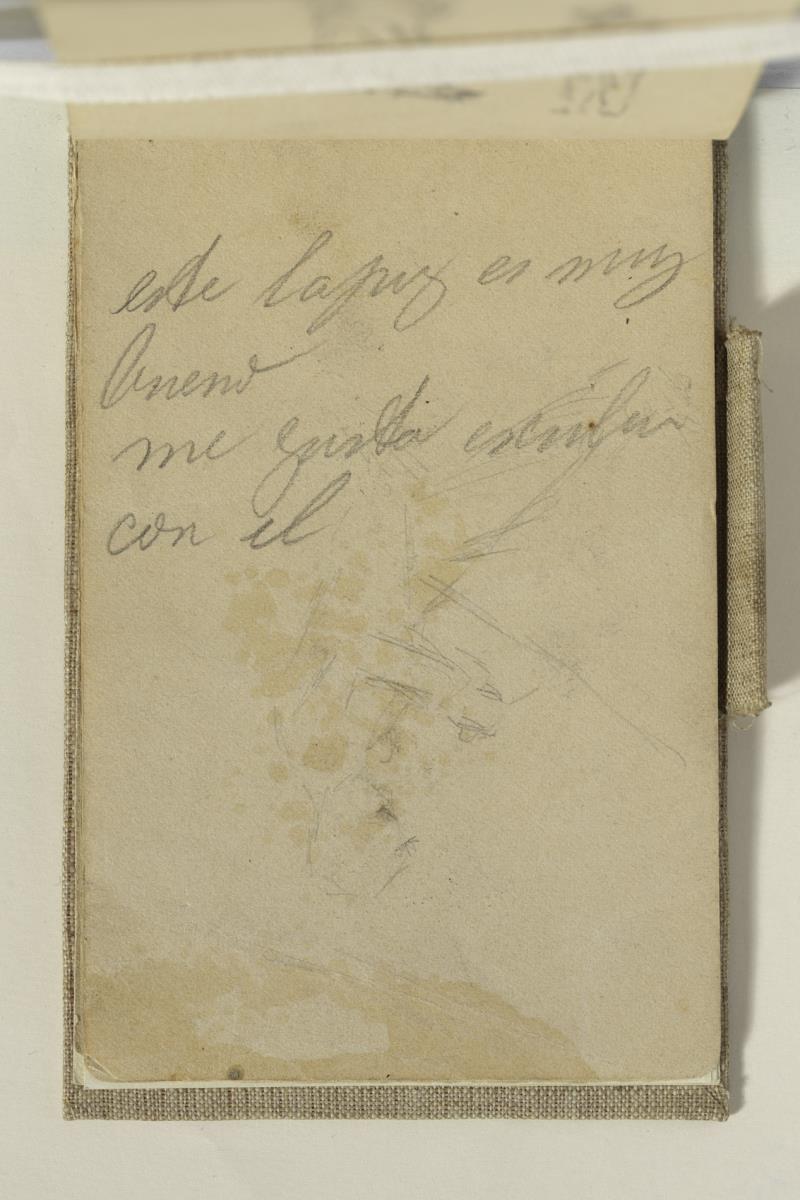 este lapiz es muy
bueno
me gusta escribir
con el